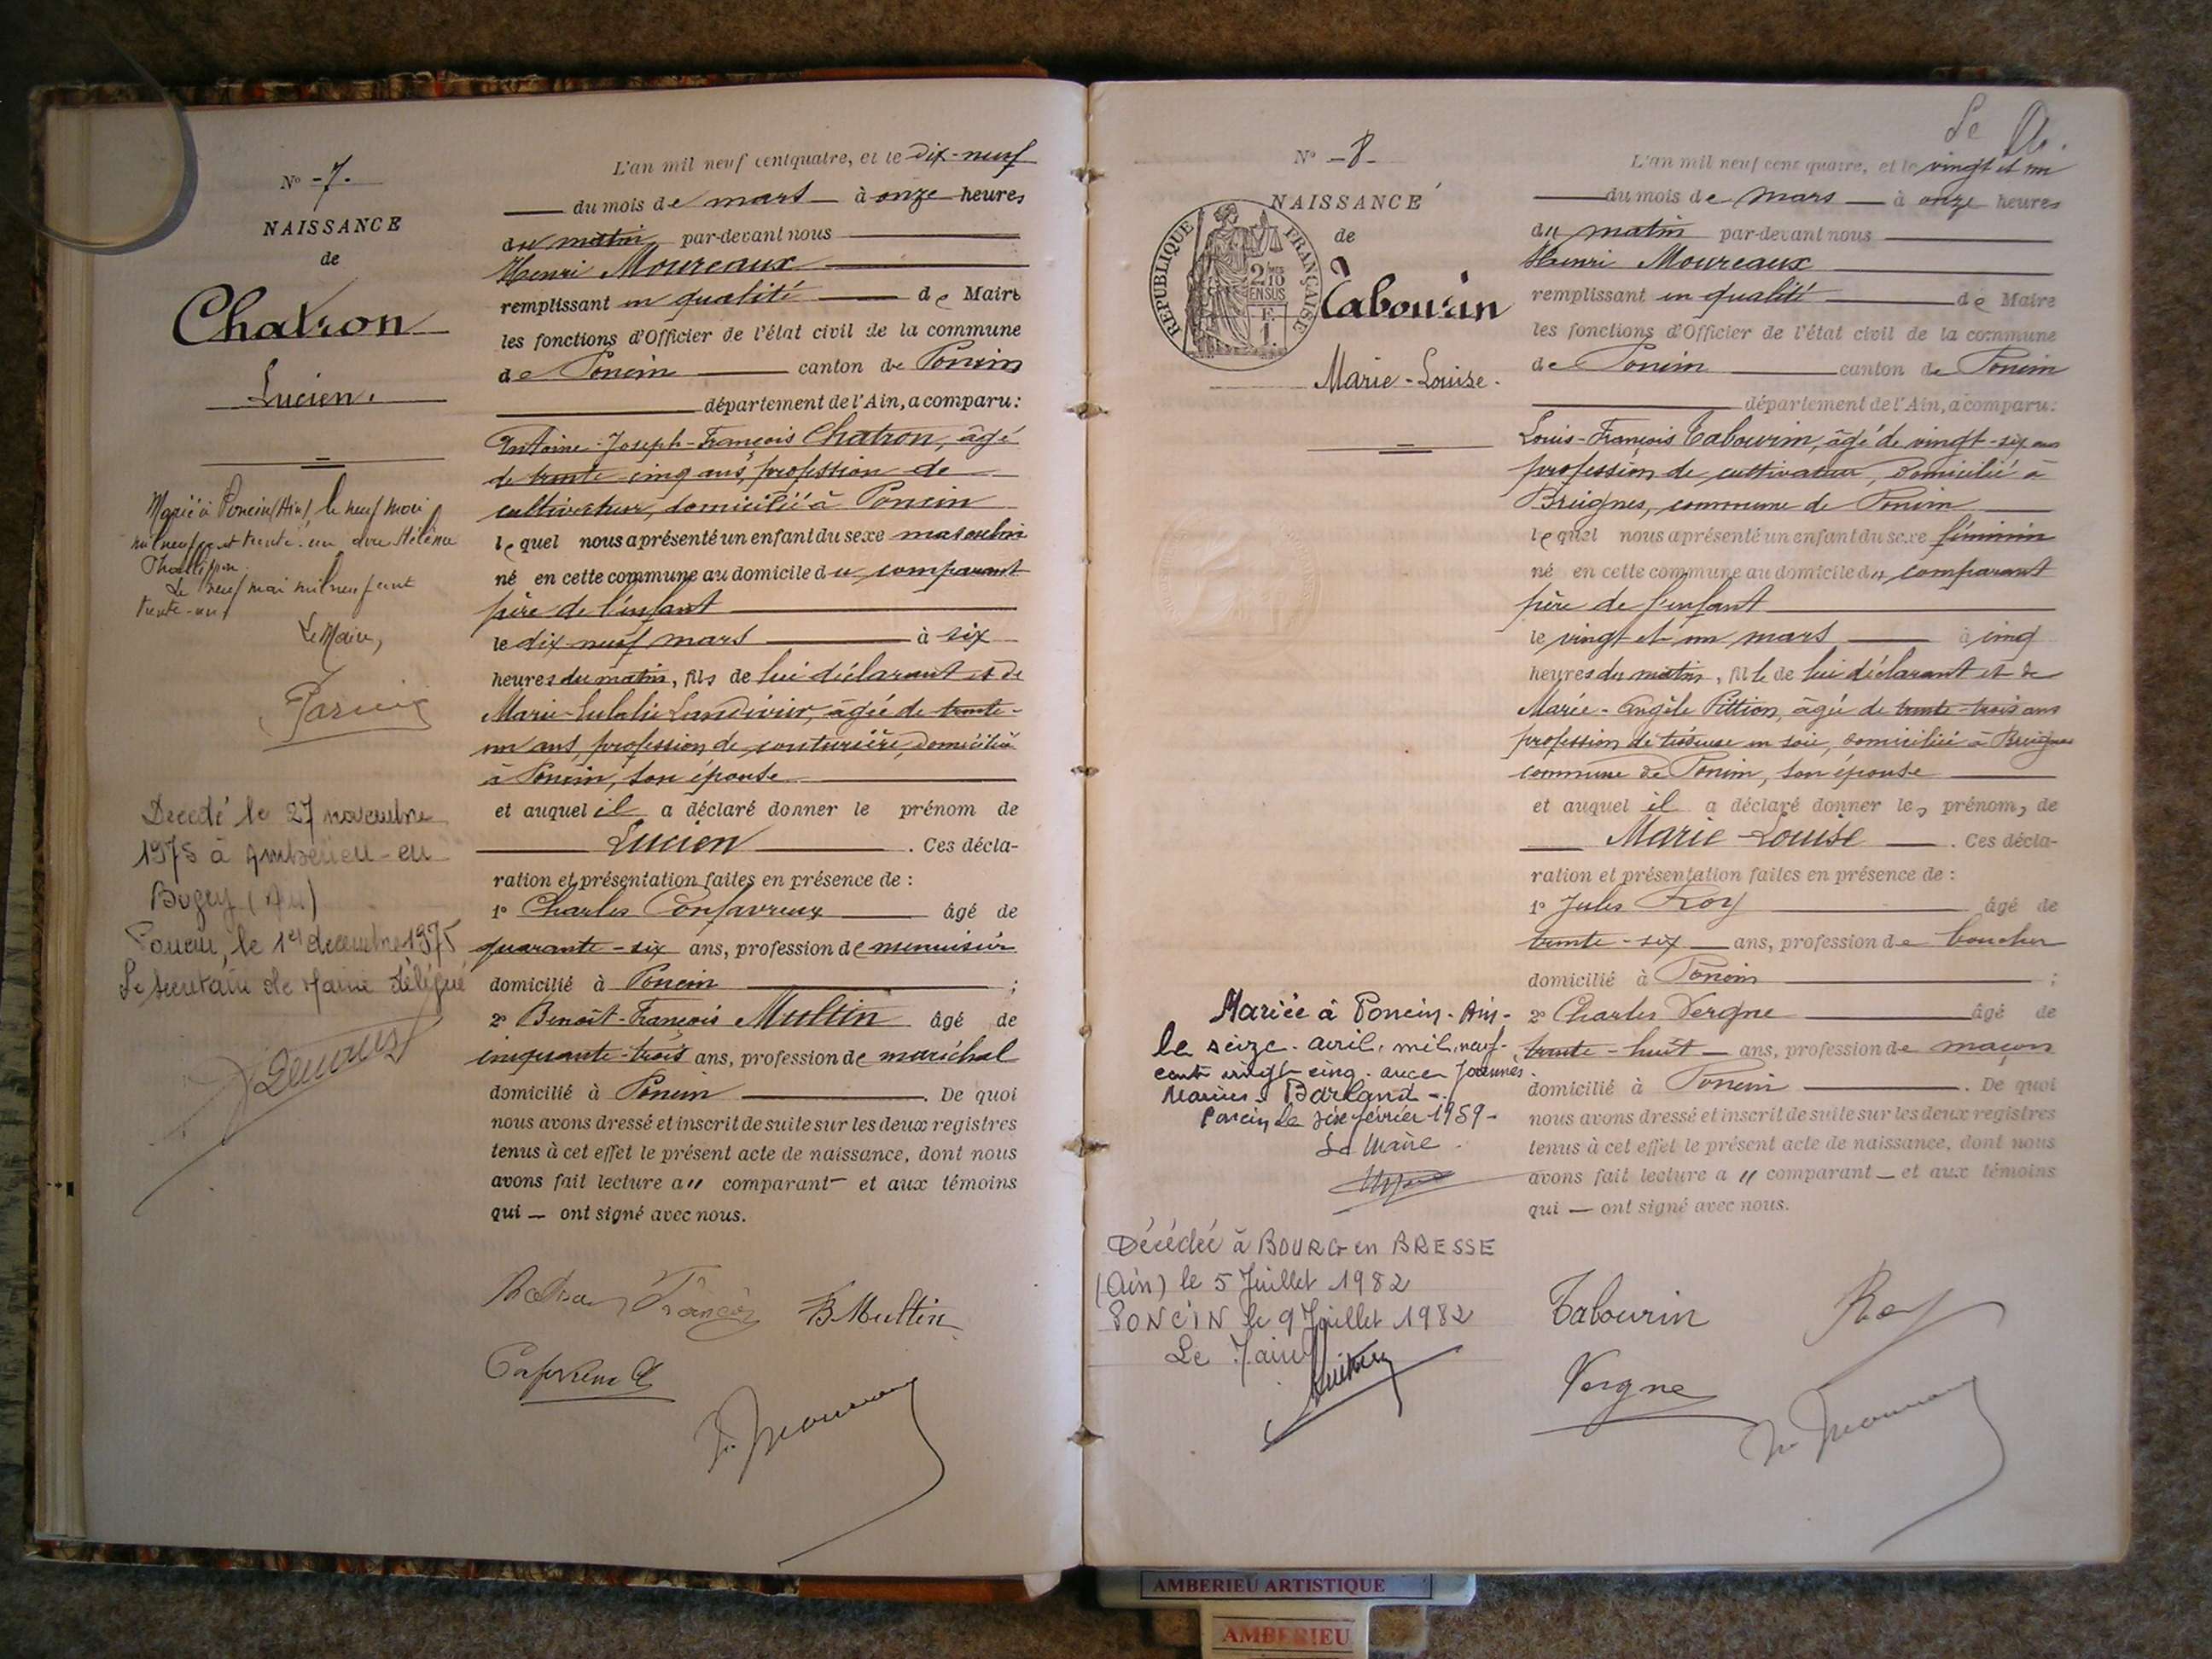 N° -7-
NAISSANCE
de
Chatron
Lucien.
Marié à Poncin (Ain), le neuf mai
mil neuf cent trente-un avec Hélène
Le neuf mai mil neuf cent
trente-un
Le Maire,
Décédé le 27 novembre
1975 à Ambérieu-en
Bugey (Ain)
Poncin, le 1er decembre 1975
Le Secrétaire de Mairie délégué
L'an mil neuf cent quatre, et le dix-neuf
du mois de mars à onze heures
du matin par-devant nous
Henri Moureaux
remplissant en qualité de Maire
les fonctions d'Officier de l'état civil de la commune
de Poncin canton de Poncin
département de l'Ain, a comparu:
Antoine-Joseph-François Chatron, âgé
de trente-cinq ans, profession de
cultivateur, domicilié à Poncin
lequel nous a présenté un enfant du sexe masculin
né en cette commune au domicile du comparant
père de l'enfant
le dix-neuf mars à six
heures du matin, fils de lui déclarant et de
Marie-Eulalie Landivier, âgée de trente-
un ans, profession de couturière, domiciliée
à Poncin, son épouse
et auquel il a déclaré donner le prénom de
Lucien. Ces décla-
ration et présentation faites en présence de :
1° Charles Confavreux âgé de
quarante-six ans, profession de menuisier
domicilié à Poncin ;
2° Benoit-François Multin âgé de
cinquante-trois ans, profession de maréchal
domicilié à Poncin. De quoi
nous avons dressé et inscrit de suite sur les deux registres
tenus à cet effet le présent acte de naissance, dont nous
avons fait lecture au comparant et aux témoins
qui — ont signé avec nous.
François B Multin
N° -8-
NAISSANCE
de
Tabourin
Marie-Louise.
RÉPUBLIQUE FRANÇAISE
2/10
EN SUS
F.
1.
Mariée à Poncin - Ain -
le seize avril mil neuf
cent vingt cinq avec Joannes
Marius Barland -
Poncin le seize février 1959 -
Le Maire
Décédée à BOURG en BRESSE
(Ain) le 5 Juillet 1982
PONCIN le 9 Juillet 1982
Le Maire
L'an mil neuf cent quatre, et le vingt et un
du mois de mars à onze heures
du matin par-devant nous
Henri Moureaux
remplissant en qualité de Maire
les fonctions d'Officier de l'état civil de la commune
de Poncin canton de Poncin
département de l'Ain, a comparu:
Louis-François Tabourin, âgé de vingt-six ans
profession de cultivateur, domicilié à
Breignes, commune de Poncin
lequel nous a présenté un enfant du sexe féminin
né en cette commune au domicile du comparant
père de l'enfant
le vingt et un mars à cinq
heures du matin, fille de lui déclarant et de
Marie-Angèle Pittion, âgée de trente-trois ans
profession de tisseuse en soie, domiciliée à Breignes
commune de Poncin, son épouse
et auquel il a déclaré donner les prénoms de
Marie-Louise. Ces décla-
ration et présentation faites en présence de :
1° Jules Roy âgé de
trente-six ans, profession de boucher
domicilié à Poncin ;
2° Charles Vergne âgé de
trente-huit ans, profession de maçon
domicilié à Poncin. De quoi
nous avons dressé et inscrit de suite sur les deux registres
tenus à cet effet le présent acte de naissance, dont nous
avons fait lecture au comparant — et aux témoins
qui — ont signé avec nous.
Tabourin Roy
Vergne
AMBERIEU ARTISTIQUE
AMBERIEU